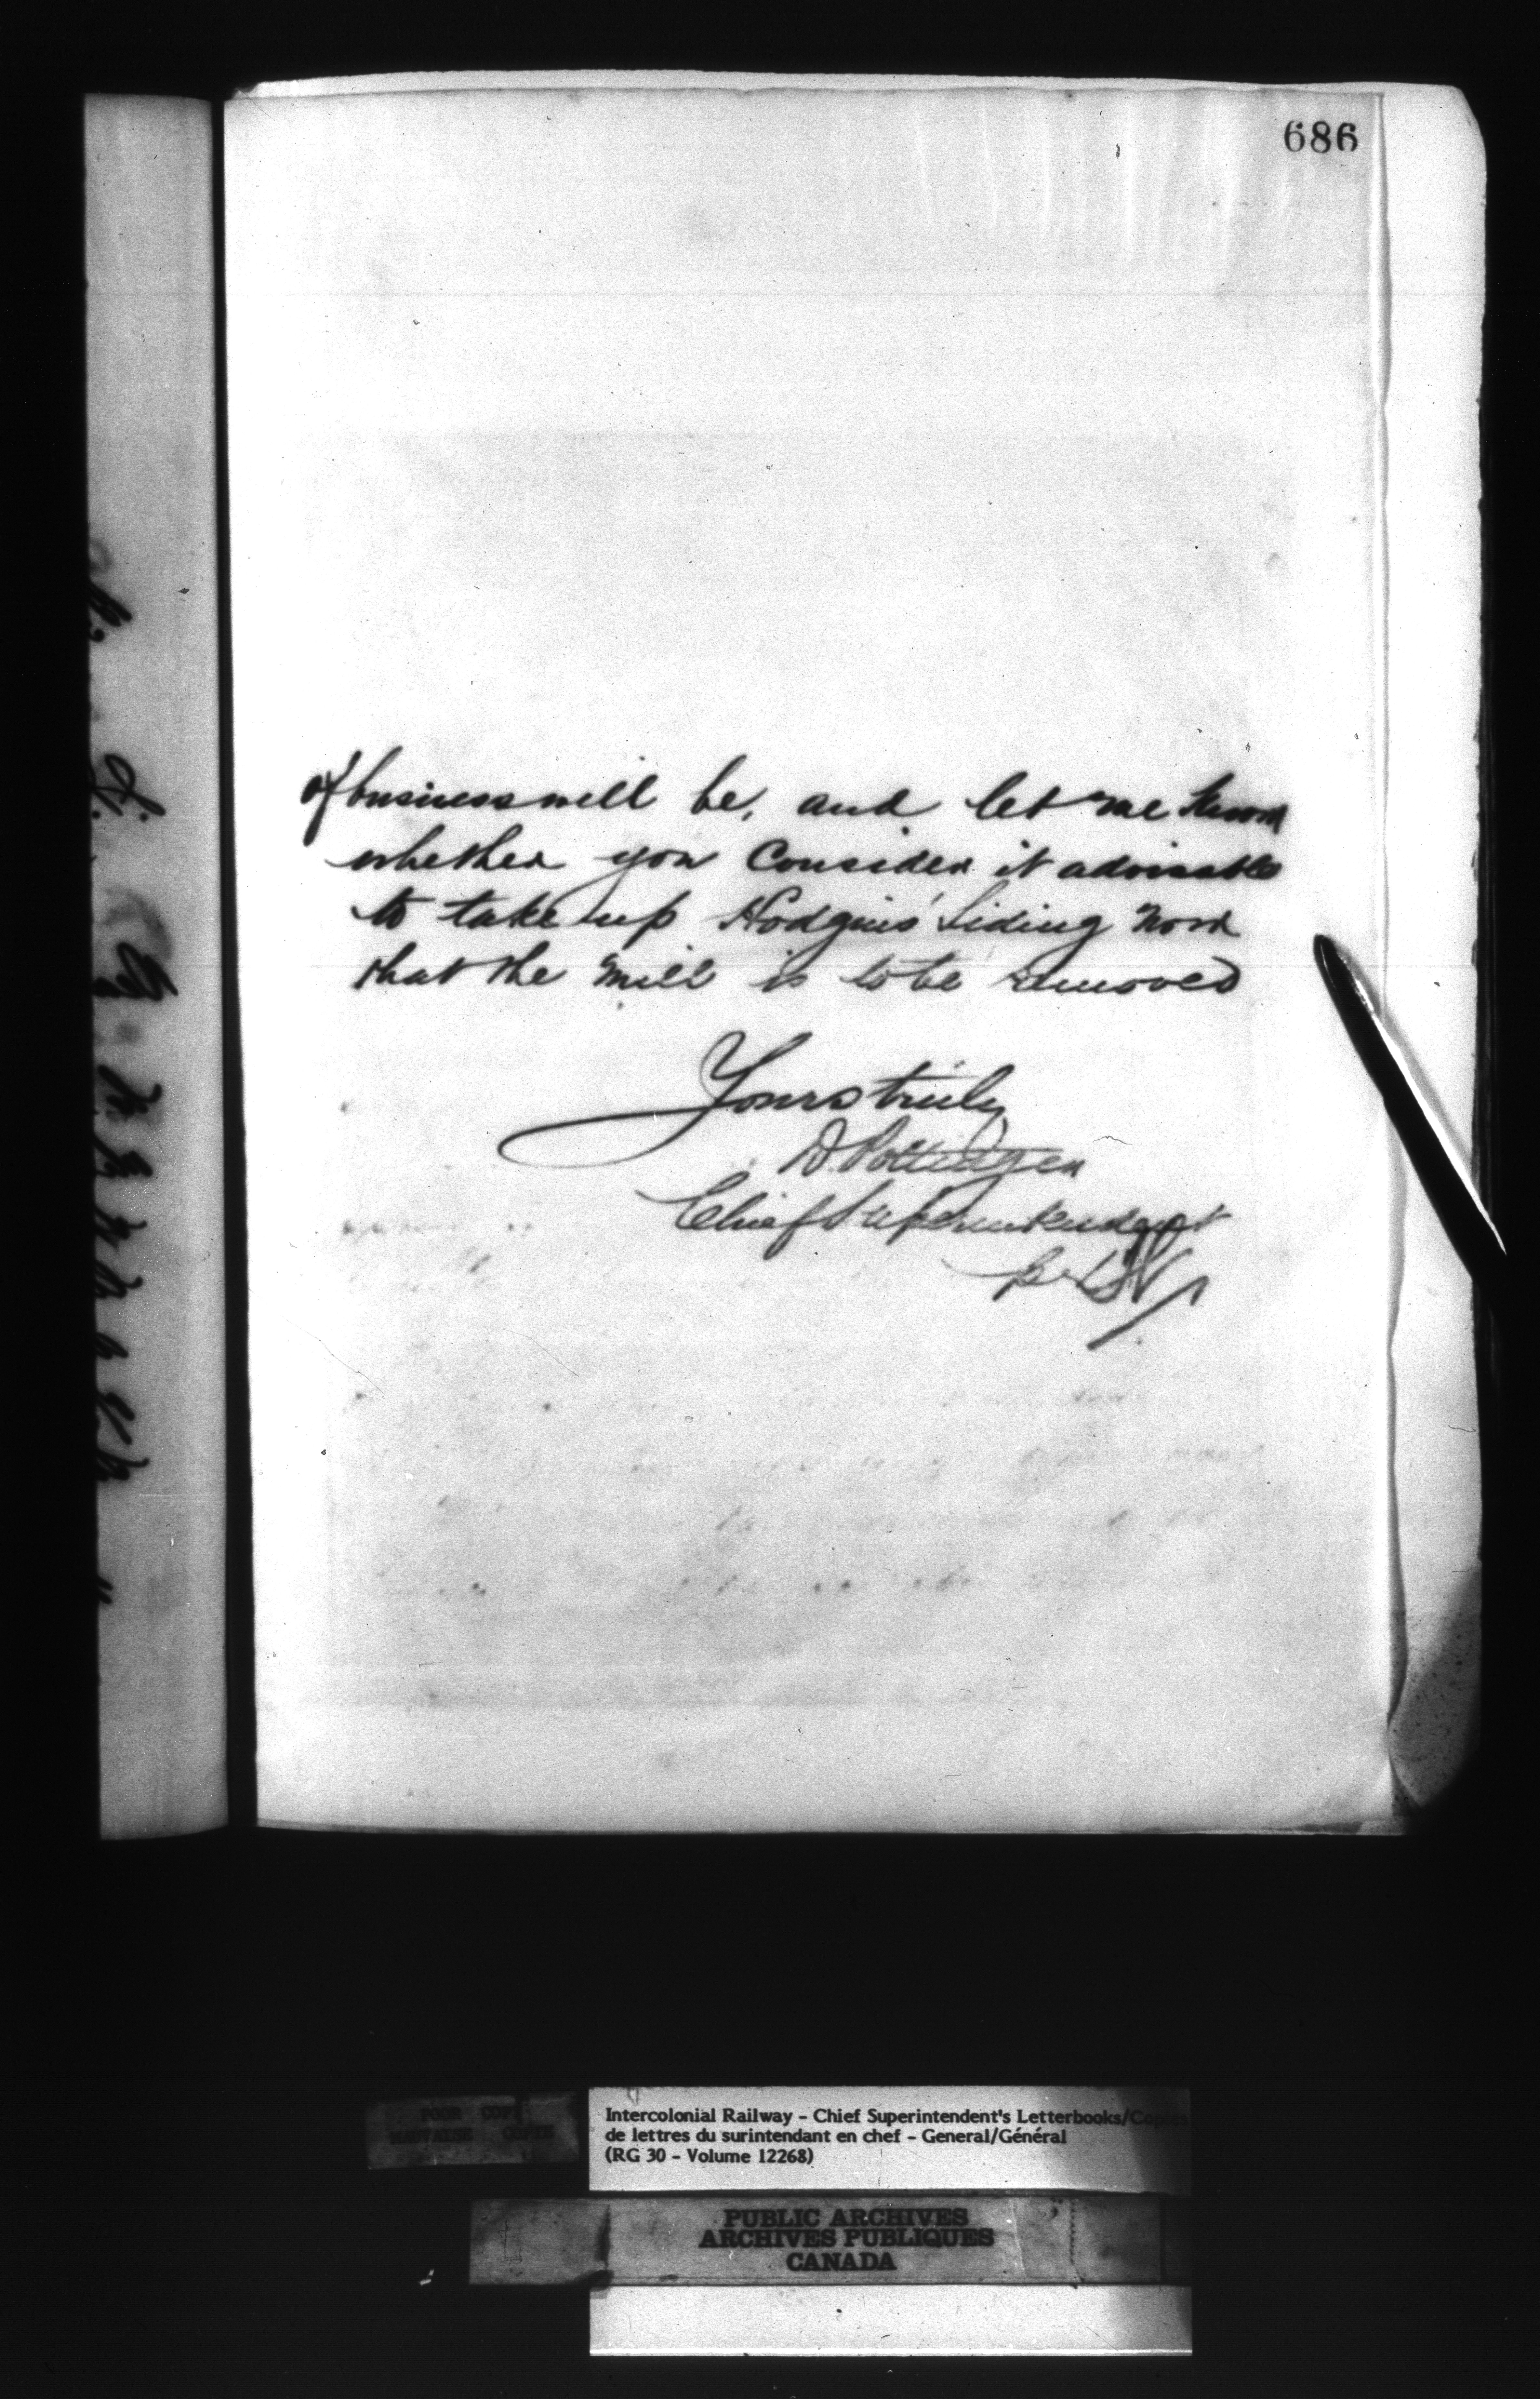 686
of business will be, and let me know
whether you consider it advisable
to take up Hodgins' Siding now
that the mill is to be removed
Yours truly
D. Pottinger
Chief Superintendent
POOR COPY
MAUVAISE COPIE
Intercolonial Railway - Chief Superintendent's Letterbooks/Copies
de lettres du surintendant en chef - General/Général
(RG 30 - Volume 12268)
PUBLIC ARCHIVES
ARCHIVES PUBLIQUES
CANADA